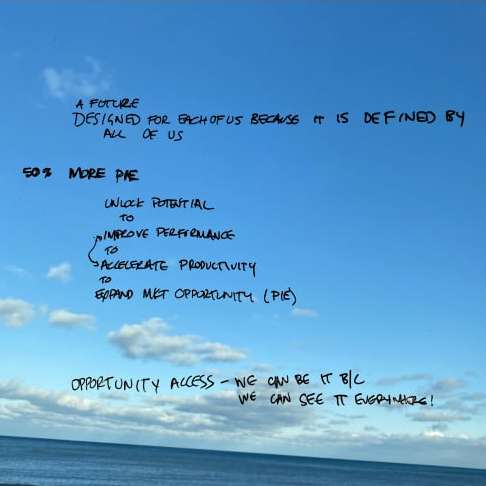 A FUTURE
DESIGNED FOR EACH OF US BECAUSE IT IS DEFINED BY
ALL OF US
50% MORE PIE
UNLOCK POTENTIAL
TO
IMPROVE PERFORMANCE
TO
ACCELERATE PRODUCTIVITY
TO
EXPAND MKT OPPORTUNITY (PIE)
OPPORTUNITY ACCESS - WE CAN BE IT B/C
WE CAN SEE IT EVERYWHERE!